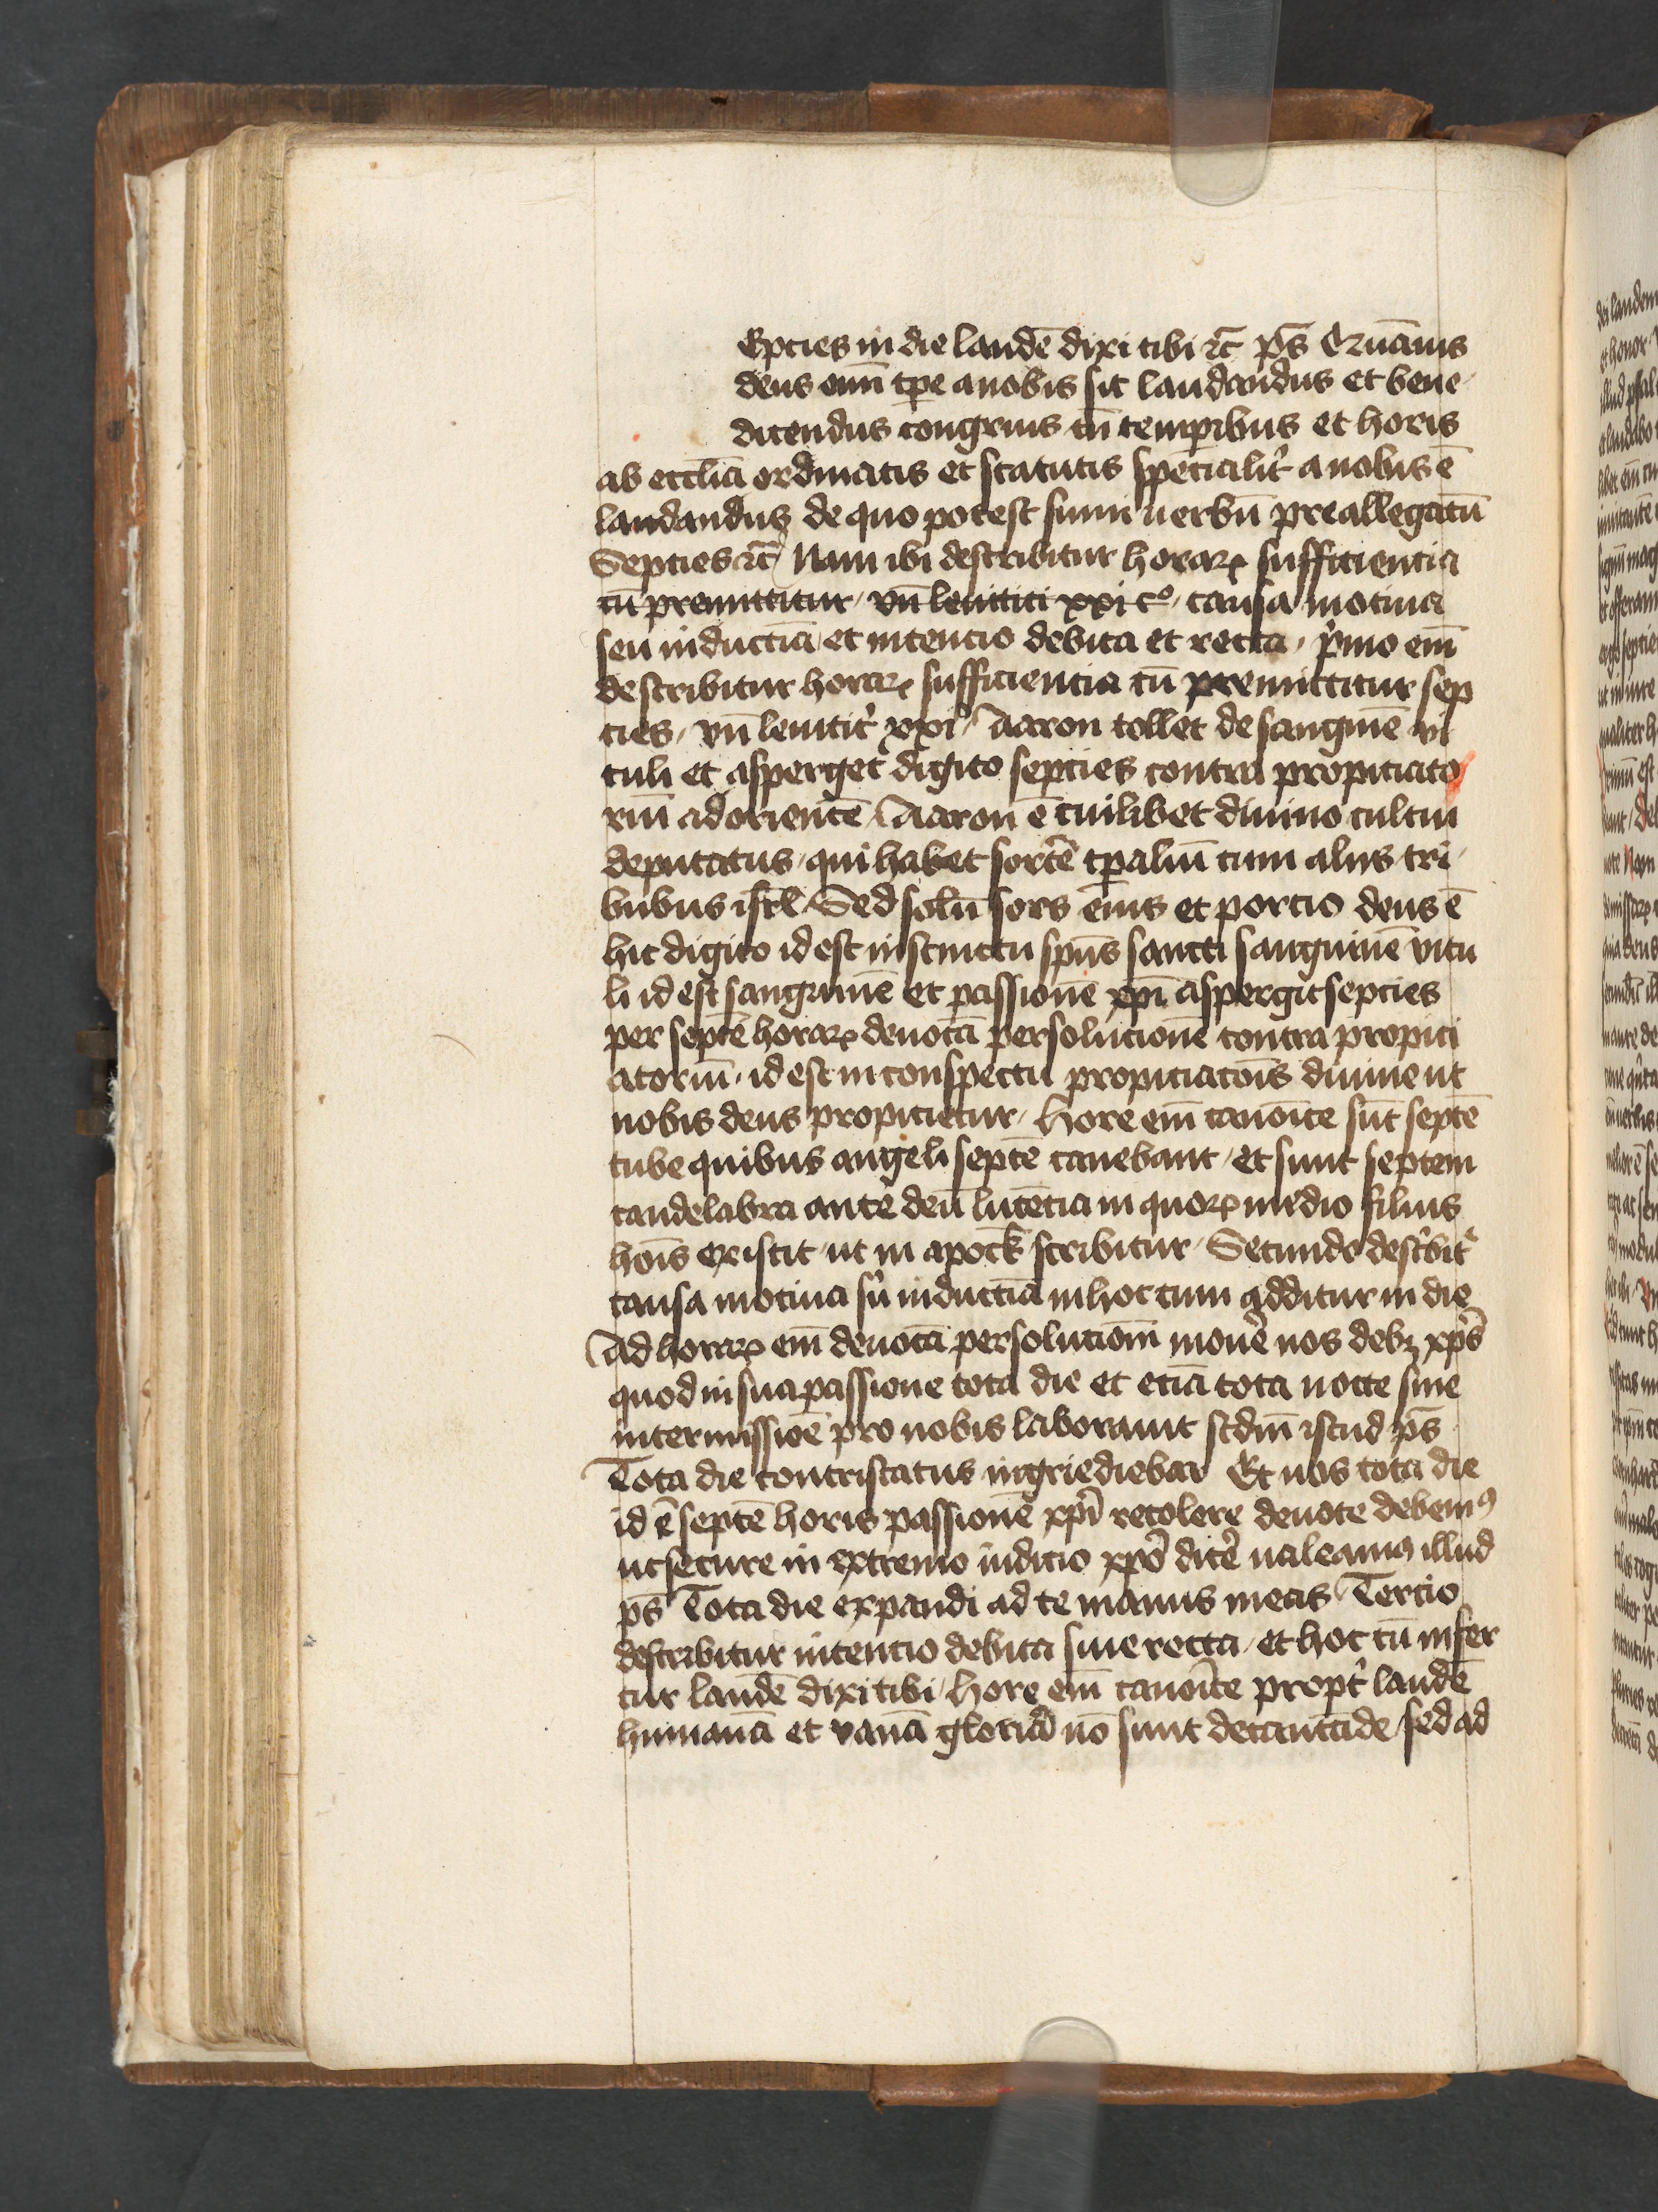 Epcies in die laudē dixi tibi ⁊c̄ p̄s Qzuāuis
deus om̄i tp̄e a nobis sit laudandus et bene
dicendus congruis tn̄ temporibus et horis
ab eccl̄ia ordinatis et statutis specialit̉ a nobis ē
laudandus de quo potest sumi uerbū preallegatū
Septies ⁊c̄ Nam ibi describitur horaꝝ sufficientia
cū premittitur vn̄ leuitici xxi c° causa motiua
seu inductiua et intentio debita et recta p̉mo em̄
describitur horaꝝ sufficientia cū premittitur sep
ties vn̄ leuitic̉ xxi° Aaron tollet de sanguinē vi
tuli et asperget digito septies contra propiciato
riū ad orientē Aaron ē cuilibet diuino cultui
deputatus qui habet sortē tp̄aliū cum aliis tri
bubus isrl̄ Sed solū sors eius et portio deus ē
hic digito id est instinctu sp̄us sancti sanguinē vitu
li id est sanguinē et passionē xp̄i aspergit septies
per septē horaꝝ deuotā persolucionē contra propici
atoriū id est in conspectu propiciatōis diuine ut
nobis deus propicietur hore em̄ canoīce sūt septē
tube quibus angeli septē canebant et sunt septem
candelabra ante deū lucētia in quoꝝ medio filius
hoīs existit ut in apock̄ scribitur Secundo descˀbit̉
causa motiua sū inductiā in hoc cum additur in die
Ad horaꝝ em̄ deuotā persolutiom̄ mouē nos debꝫ xp̄s
quod in sua passione tota die et etiā tota nocte sine
intermissiōe pro nobis laborauit scdm̄ istud p̄s
Tota die contristatus ingriediebar Et nos tota die
id ē septē horis passionē xp̄i recolere deuote debemꝰ
ut secure in extremo iudicio xp̄o dicē ualeamꝰ illud
p̄s Tota die expandi ad te manus meas Tercio
describitur intentio debita siue recta et hoc cū infer
tur laudē dixi tibi hore em̄ canoīce propt̉ laudē
humanā et vanā gloriā nō sunt decantāde sed ad